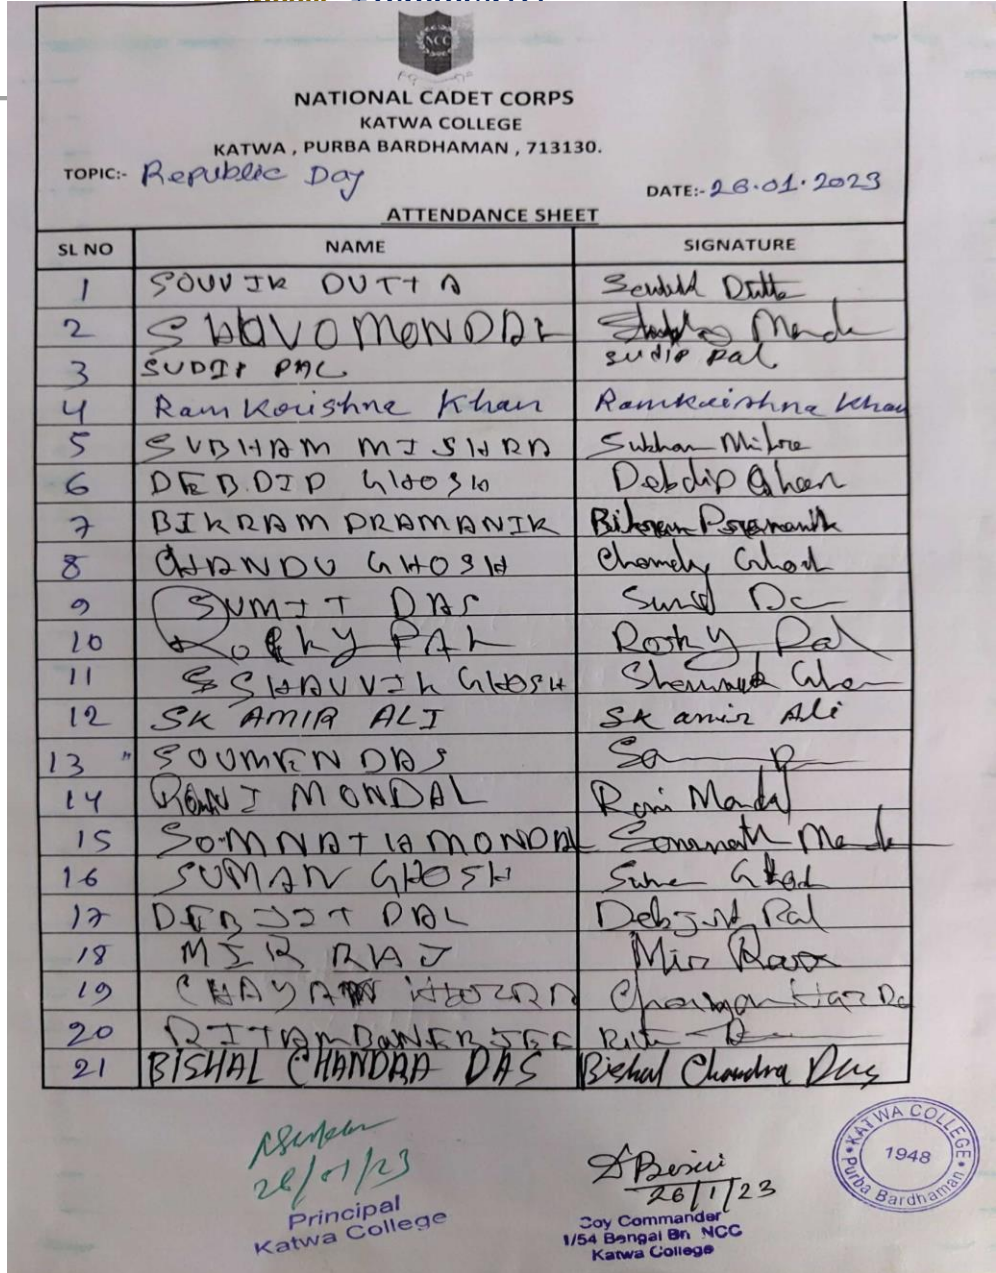 NCC
NATIONAL CADET CORPS
KATWA COLLEGE
KATWA , PURBA BARDHAMAN , 713130.
TOPIC:- Republic Day
DATE:- 26.01.2023
ATTENDANCE SHEET
SL NO NAME SIGNATURE
1 SOUVIK DUTTA Dutta
2 SHUVO MONDAL
3 SUDIP PAL sudip pal
4 Ramkrishna Khan Ramkrishna Khan
5 SUBHAM MISHRA Subham
6 DEBDIP GHOSH Debdip Ghosh
7 BIKRAM PRAMANIK Bikram Pramanik
8 CHANDU GHOSH Ghosh
9 SUMIT DAS
10 ROCKY PAL Rocky Pal
11 SHAUVIK GHOSH
12 SK AMIR ALI SK amir Ali
13 SOUMEN DAS
14 RONI MONDAL Roni Mondal
15 SOMNATH MONDAL Somnath
16 SUMAN GHOSH
17 DEBJIT PAL Debjit Pal
18 MIR RIAJ Mir
19 CHAYAN HAZRA Chayan Hazra
20 RITAM BANERJEE
21 BISHAL CHANDRA DAS Bishal Chandra Das
26/01/23
Principal
Katwa College
26/1/23
Coy Commander
1/54 Bengal Bn NCC
Katwa College
KATWA COLLEGE
1948
Purba Bardhaman